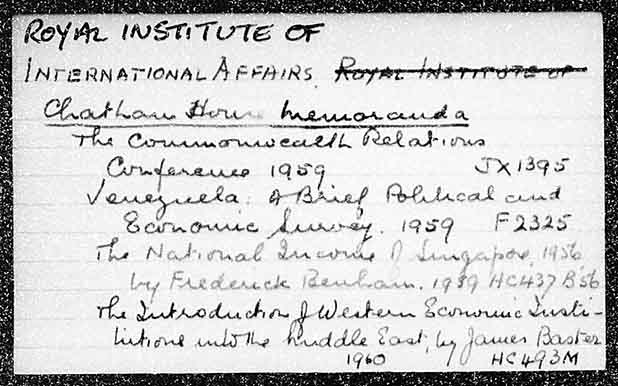 ROYAL INSTITUTE OF
INTERNATIONAL AFFAIRS ROYAL INSTITUTE OF
Chatham House Memoranda
The Commonwealth Relations
Conference 1959 JX1395
Venezuela: A Brief Political and
Economic Survey. 1959 F2325
The National Income of Singapore, 1956
by Frederick Benham. 1959 HC437 B'56
The Introduction of Western Economic Insti-
tutions into the Middle East, by James Baster
1960 HC493M